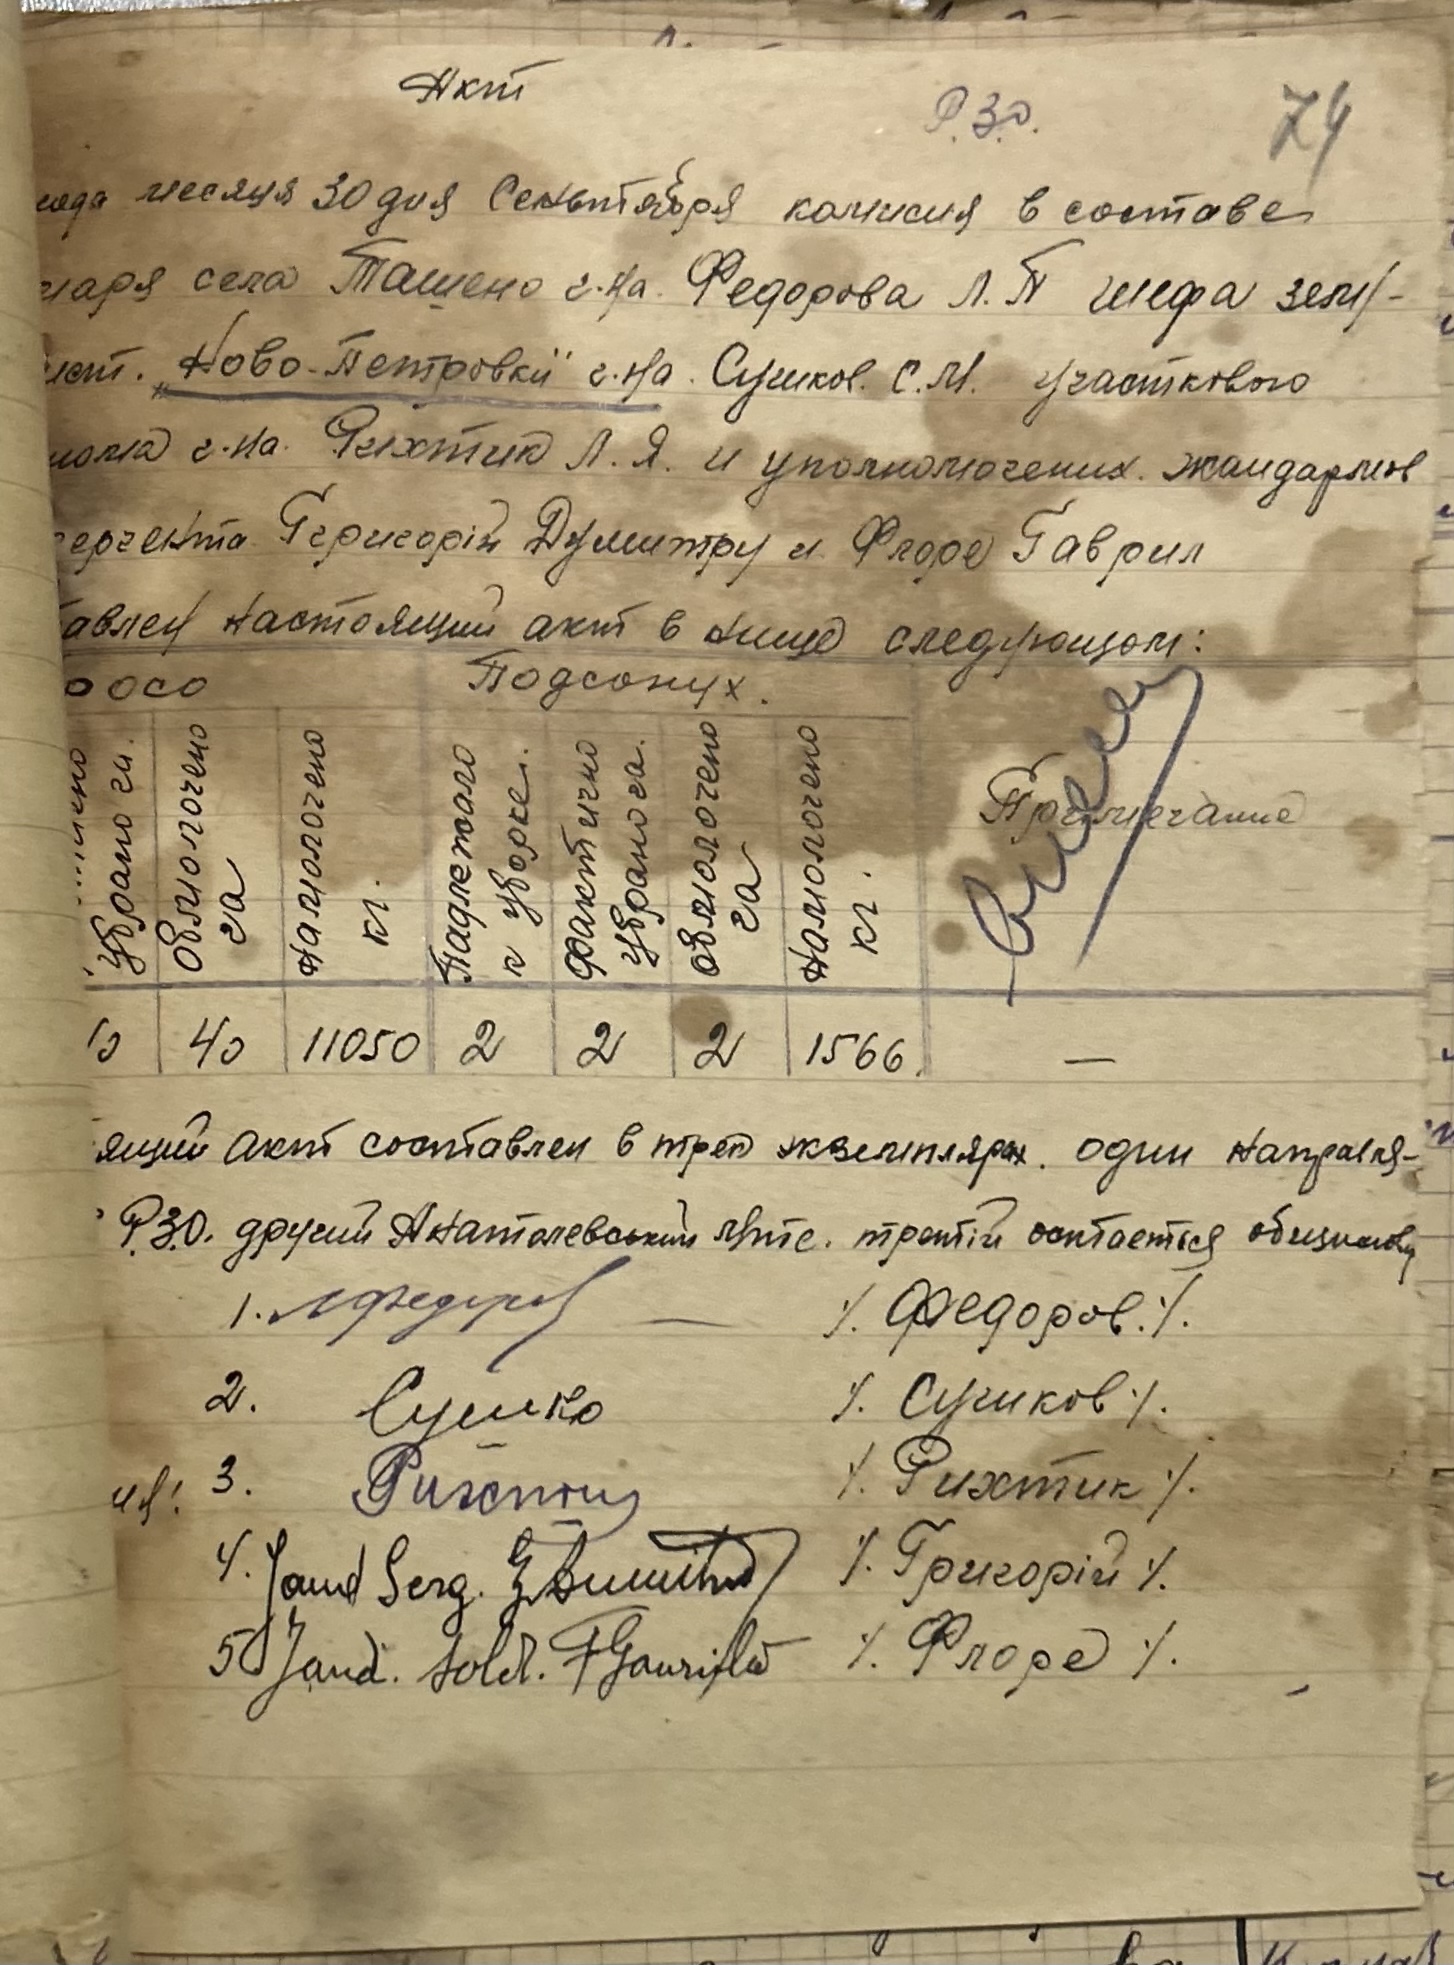 Акт
Р.З.О.
74
года месяця 30 дня Сеньтября комисия в составе
села Ташено г.на. Федорова Л.П шефа земл-
"Ново-Петровкі" г.на. Сушков. С.М. участкового
г.на. Рихтик Л.Я. и уполномочених. жандармов
сержента Григорій Думитру и Флоре Гаврил
тавлен настоящий акт в нище следующом:
просо Подсонух.
убрано га.
Обмолочено га
Намолочено кг.
Надлежало к уборке.
Фактично убрано га.
Обмолочено га
Намолочено кг.
Примечание
40 11050 2 2 2 1566 —
ящий акт составлен в трех экземплярах. один направля-
Р.З.О. другий Анатолевський третій остается
1. Лфедоров — /. Федоров./.
2. Сушко /. Сушков /.
ия: 3. Рихтик /. Рихтик /.
4. Jand Serg. G Dumitru /. Григорій /.
5 Jand. sold. F Gavrilă /. Флоре /.